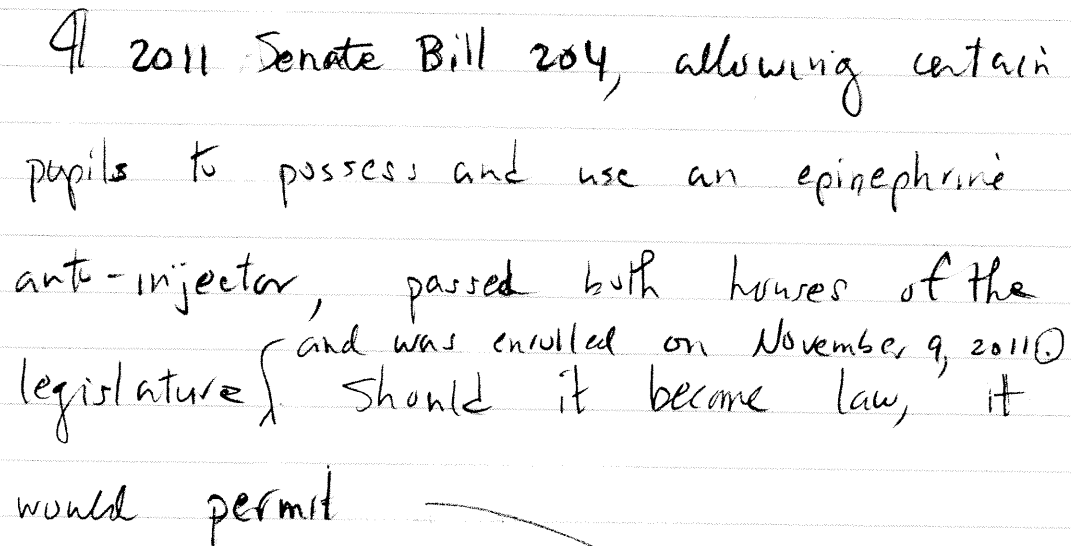 ¶ 2011 Senate Bill 204, allowing certain
pupils to possess and use an epinephrine
auto-injector, passed both houses of the
and was enrolled on November 9, 2011.
legislature Should it become law, it
would permit